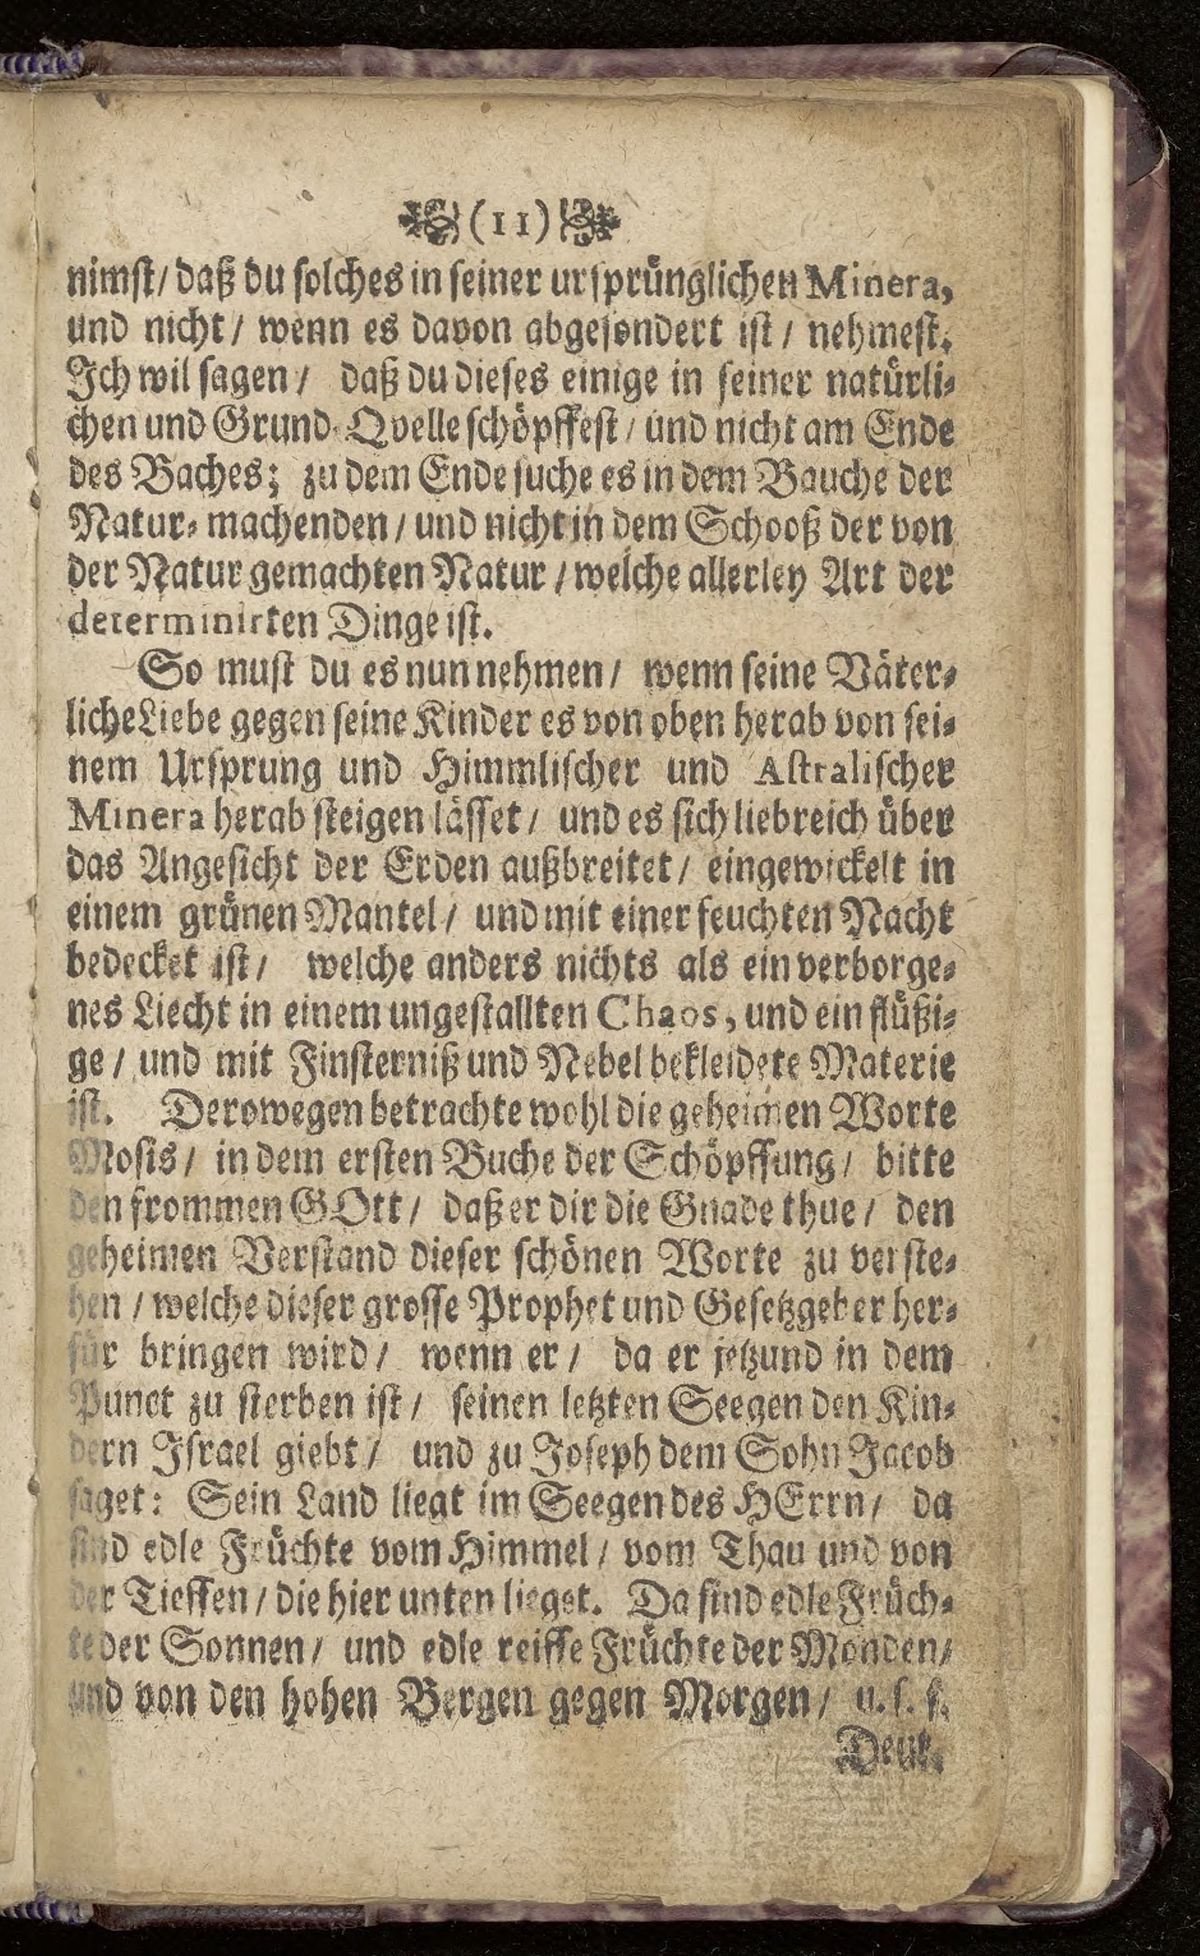 (11)
nimst/ daß du solches in seiner ursprünglichen Minera,
und nicht/ wenn es davon abgesondert ist/ nehmest.
Ich wil sagen/ daß du dieses einige in seiner natürli-
chen und Grund-Qvelle schöpffest/ und nicht am Ende
des Baches; zu dem Ende suche es in dem Bauche der
Natur-machenden/ und nicht in dem Schooß der von
der Natur gemachten Natur/ welche allerley Art der
determinirten Dinge ist.
So must du es nun nehmen/ wenn seine Väter-
liche Liebe gegen seine Kinder es von oben herab von sei-
nem Ursprung und Himmlischer und Astralischer
Minera herab steigen lässet/ und es sich liebreich über
das Angesicht der Erden außbreitet/ eingewickelt in
einem grünen Mantel/ und mit einer feuchten Nacht
bedecket ist/ welche anders nichts als ein verborge-
nes Liecht in einem ungestallten Chaos, und ein flüßi-
ge/ und mit Finsterniß und Nebel bekleidete Materie
ist. Derowegen betrachte wohl die geheimen Worte
Mosis/ in dem ersten Buche der Schöpffung/ bitte
den frommen GOtt/ daß er dir die Gnade thue/ den
geheimen Verstand dieser schönen Worte zu verste-
hen/ welche dieser grosse Prophet und Gesetzgeber her-
für bringen wird/ wenn er/ da er jetzund in dem
Punct zu sterben ist/ seinen letzten Seegen den Kin-
dern Israel giebt/ und zu Joseph dem Sohn Jacob
saget: Sein Land liegt im Seegen des HErrn/ da
sind edle Früchte vom Himmel/ vom Thau und von
der Tieffen/ die hier unten lieget. Da sind edle Früch-
te der Sonnen/ und edle reiffe Früchte der Monden/
und von den hohen Bergen gegen Morgen/ u. s. f.
Deut.